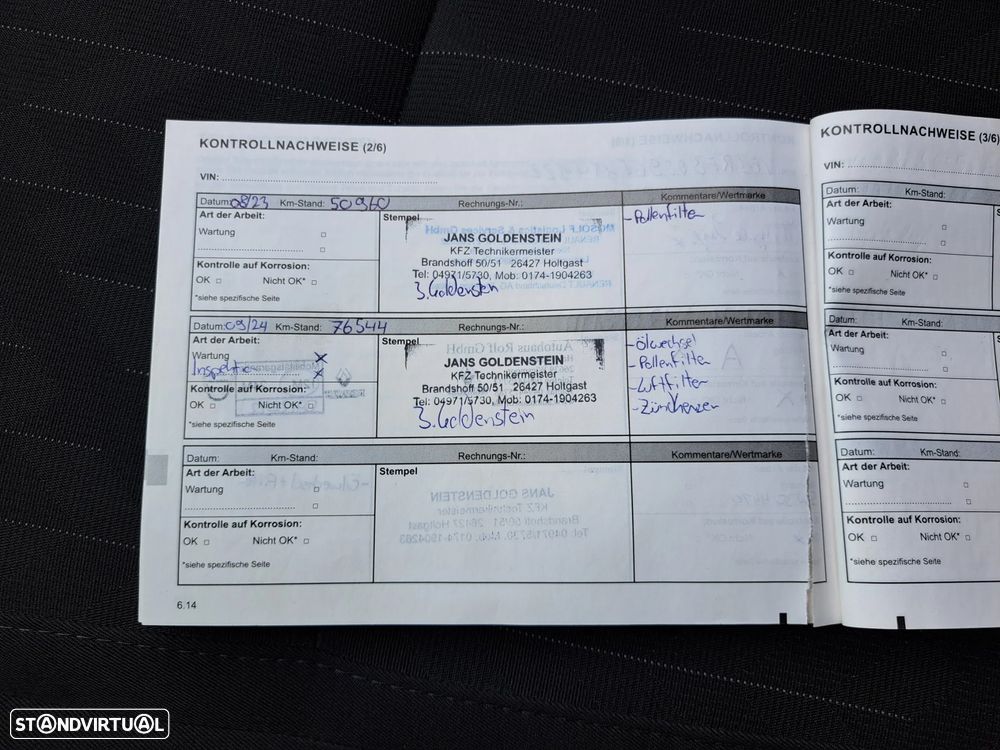 KONTROLLNACHWEISE (2/6)
VIN:
Datum: 08/23 Km-Stand: 50960 Rechnungs-Nr.: Kommentare/Wertmarke
Art der Arbeit:
Wartung
Kontrolle auf Korrosion:
OK Nicht OK*
*siehe spezifische Seite
Stempel
JANS GOLDENSTEIN
KFZ Technikermeister
Brandshoff 50/51 26427 Holtgast
Tel: 04971/5730, Mob: 0174-1904263
J. Goldenstein
- Pollenfilter
Datum: 09/24 Km-Stand: 76544 Rechnungs-Nr.: Kommentare/Wertmarke
Art der Arbeit:
Wartung x
Inspektion x
Kontrolle auf Korrosion:
OK Nicht OK*
*siehe spezifische Seite
Stempel
JANS GOLDENSTEIN
KFZ-Technikermeister
Brandshoff 50/51 26427 Holtgast
Tel: 04971/5730, Mob: 0174-1904263
J. Goldenstein
- Ölwechsel
- Pollenfilter
- Luftfilter
- Zündkerzen
Datum: Km-Stand: Rechnungs-Nr.: Kommentare/Wertmarke
Art der Arbeit:
Wartung
Kontrolle auf Korrosion:
OK Nicht OK*
*siehe spezifische Seite
Stempel
6.14
KONTROLLNACHWEISE (3/6)
VIN:
Datum: Km-Stand:
Art der Arbeit:
Wartung
Kontrolle auf Korrosion:
OK Nicht OK*
*siehe spezifische Seite
Datum: Km-Stand:
Art der Arbeit:
Wartung
Kontrolle auf Korrosion:
OK Nicht OK*
*siehe spezifische Seite
Datum: Km-Stand:
Art der Arbeit:
Wartung
Kontrolle auf Korrosion:
OK Nicht OK*
*siehe spezifische Seite
STANDVIRTUAL